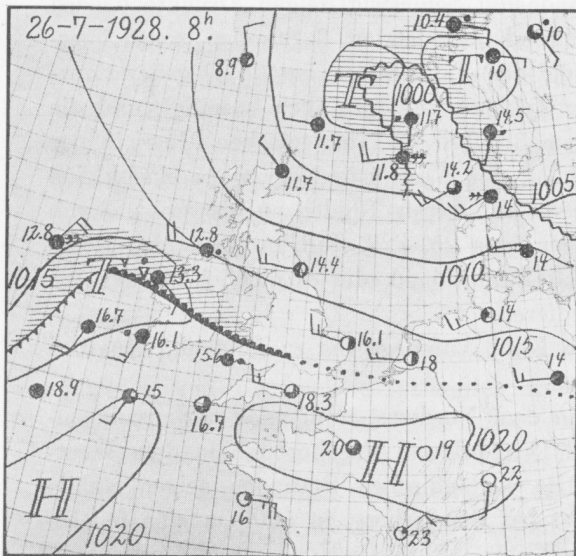 26-7-1928. 8h.
10.4
10
8.9
T
T
10
1000
11.7
11.7
14.5
11.8
11.7
14.2
14
1005
12.8
12.8
1010
14
1015
T
13.3
14.4
16.7
16.1
14
16.1
1015
15.6
18
14
18.9
15
16.7
18.3
1020
20
H
19
H
22
1020
16
23